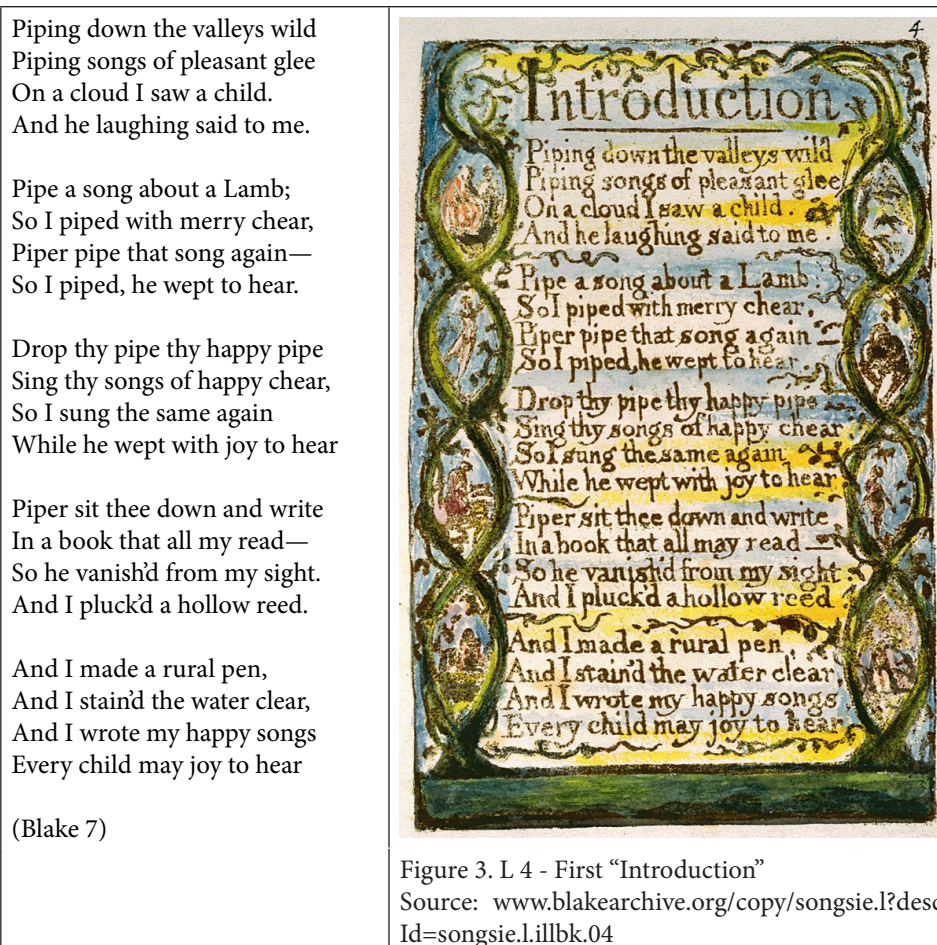 Piping down the valleys wild
Piping songs of pleasant glee
On a cloud I saw a child.
And he laughing said to me.
Pipe a song about a Lamb;
So I piped with merry chear,
Piper pipe that song again—
So I piped, he wept to hear.
Drop thy pipe thy happy pipe
Sing thy songs of happy chear,
So I sung the same again
While he wept with joy to hear
Piper sit thee down and write
In a book that all my read—
So he vanish'd from my sight.
And I pluck'd a hollow reed.
And I made a rural pen,
And I stain'd the water clear,
And I wrote my happy songs
Every child may joy to hear
(Blake 7)
4
Introduction
Piping down the valleys wild
Piping songs of pleasant glee
On a cloud I saw a child.
And he laughing said to me.
Pipe a song about a Lamb:
So I piped with merry chear,
Piper pipe that song again—
So I piped, he wept to hear
Drop thy pipe thy happy pipe
Sing thy songs of happy chear
So I sung the same again
While he wept with joy to hear
Piper sit thee down and write
In a book that all may read—
So he vanish'd from my sight
And I pluck'd a hollow reed
And I made a rural pen,
And I stain'd the water clear,
And I wrote my happy songs
Every child may joy to hear
Figure 3. L 4 - First “Introduction”
Source: www.blakearchive.org/copy/songsie.l?desc
Id=songsie.l.illbk.04